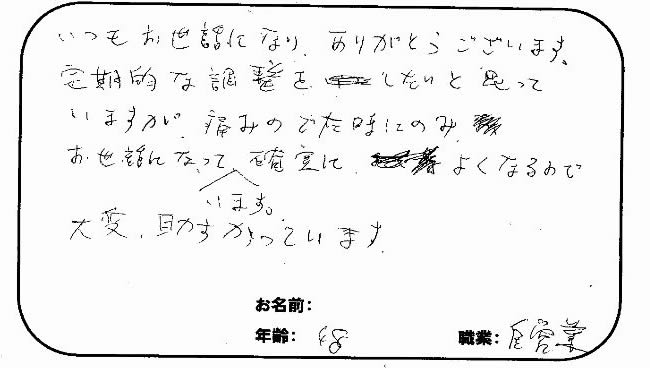 いつもお世話になり、ありがとうございます。
定期的な調整をしたいと思って
いますが、痛みのでた時にのみ
お世話になって確実によくなるので
います。
大変、助すかっています
お名前:
年齢: 48
職業: 自営業